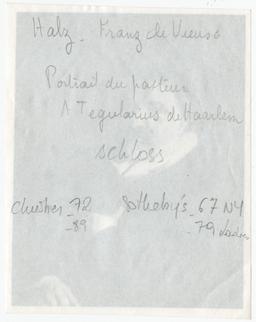 Halz - Franz de Vieux
Portrait du pasteur
A Tegularius de Haarlem
schloss
Christies - 72 Sotheby's - 67 NY
- 89 - 79 Londres